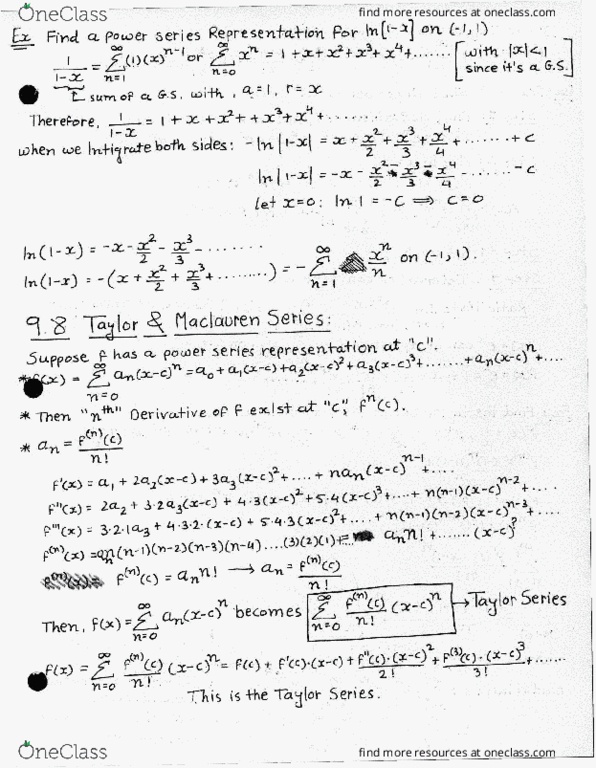 OneClass find more resources at oneclass.com
Ex Find a power series Representation for ln|1-x| on (-1,1)
1/(1-x) = ∑_{n=1}^{∞} (1)(x)^{n-1} or ∑_{n=0}^{∞} x^n = 1+x+x²+x³+x⁴+....... [with |x|<1 since it's a G.S.]
sum of a G.S. with, a=1, r=x
Therefore, 1/(1-x) = 1+x+x²+ +x³+x⁴+.......
when we Intigrate both sides: -ln|1-x| = x+x²/2+x³/3+x⁴/4+.......+c
ln|1-x| = -x-x²/2-x³/3-x⁴/4-.......-c
let x=0: ln 1 = -c ⟹ c=0
ln(1-x) = -x-x²/2-x³/3-........
ln(1-x) = -(x+x²/2+x³/3+.........) = -∑_{n=1}^{∞} x^n/n on (-1,1).
9.8 Taylor & Maclauren Series:
Suppose f has a power series representation at "c".
* f(x) = ∑_{n=0}^{∞} a_n(x-c)^n = a_0+a_1(x-c)+a_2(x-c)²+a_3(x-c)³+.......+a_n(x-c)^n+....
* Then "nth" Derivative of f exist at "c", f^n(c).
* a_n = f^{(n)}(c)/n!
f'(x) = a_1+2a_2(x-c)+3a_3(x-c)²+....+na_n(x-c)^{n-1}+....
f''(x) = 2a_2+3·2a_3(x-c)+4·3(x-c)²+5·4(x-c)³+....+n(n-1)(x-c)^{n-2}+....
f'''(x) = 3·2·1a_3+4·3·2·(x-c)+5·4·3(x-c)²+....+n(n-1)(n-2)(x-c)^{n-3}+....
f^{(n)}(x) = a_n n(n-1)(n-2)(n-3)(n-4)....(3)(2)(1)+= a_n n!+.......(x-c)^?
f^{(n)}(c) = a_n n! → a_n = f^{(n)}(c)/n!
Then, f(x) = ∑_{n=0}^{∞} a_n(x-c)^n becomes ∑_{n=0}^{∞} f^{(n)}(c)/n! (x-c)^n → Taylor Series
f(x) = ∑_{n=0}^{∞} f^{(n)}(c)/n! (x-c)^n = f(c)+f'(c)·(x-c)+f''(c)·(x-c)²/2!+f^{(3)}(c)·(x-c)³/3!+.......
This is the Taylor Series.
OneClass find more resources at oneclass.com